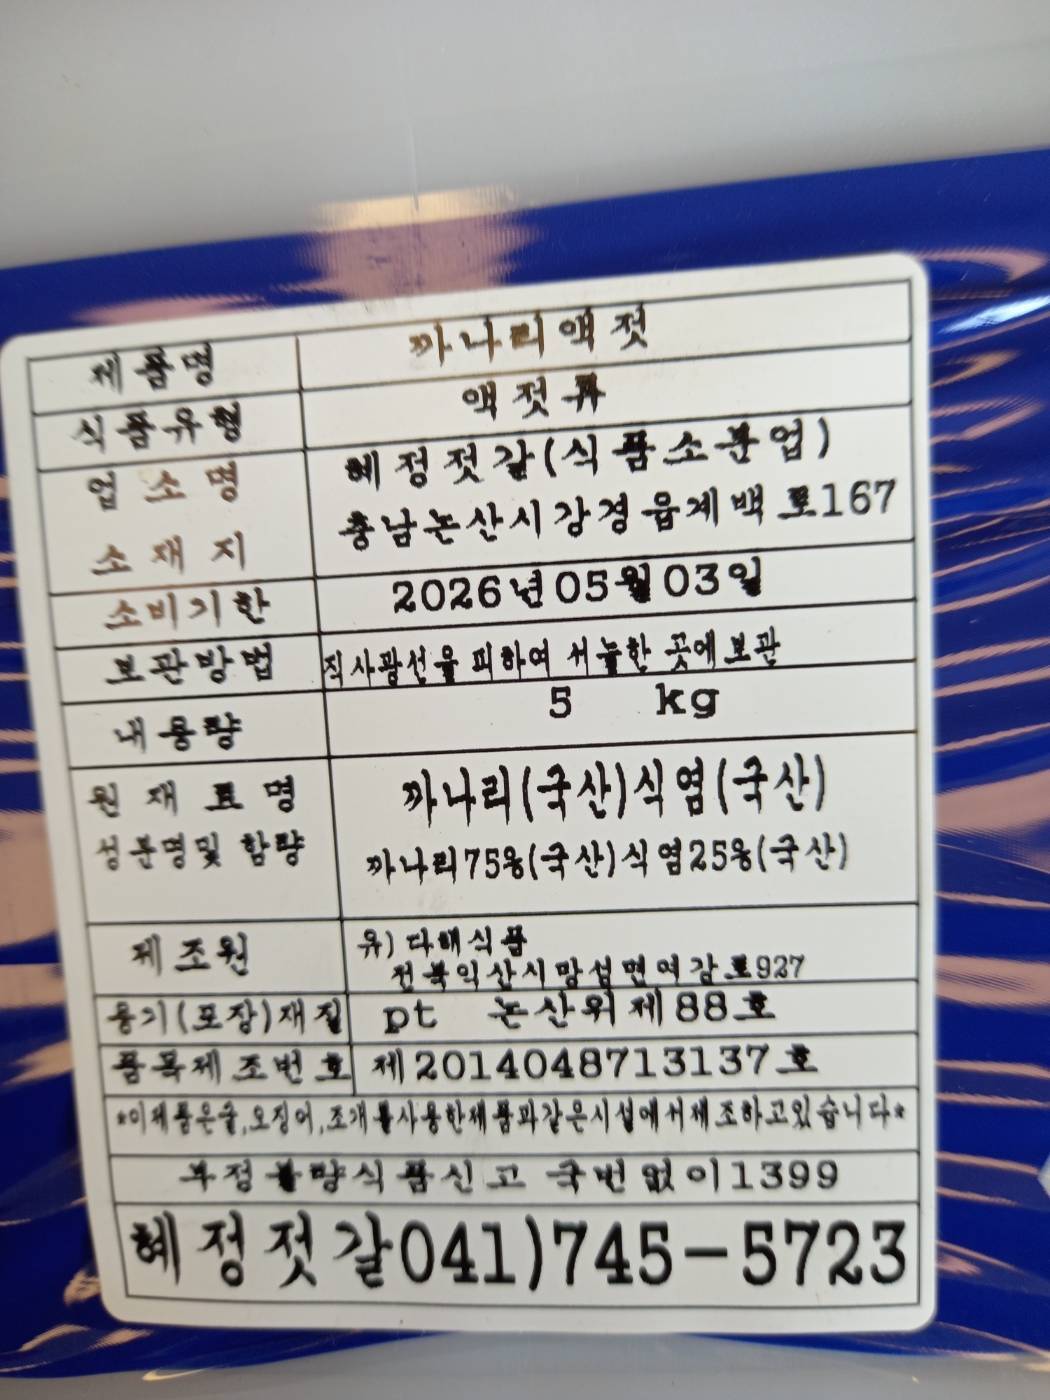 제품명 까나리액젓
식품유형 액젓류
업소명 혜정젓갈(식품소분업)
소재지 충남논산시강경읍계백로167
소비기한 2026년05월03일
보관방법 직사광선을 피하여 서늘한 곳에보관
내용량 5 kg
원재료명 까나리(국산)식염(국산)
성분명및 함량 까나리75%(국산)식염25%(국산)
제조원 유)다해식품
전북익산시망성면여강로927
용기(포장)재질 pt 논산위제88호
품목제조번호 제2014048713137호
*이제품은굴,오징어,조개를사용한제품과같은시설에서제조하고있습니다*
부정불량식품신고 국번없이1399
혜정젓갈041)745-5723